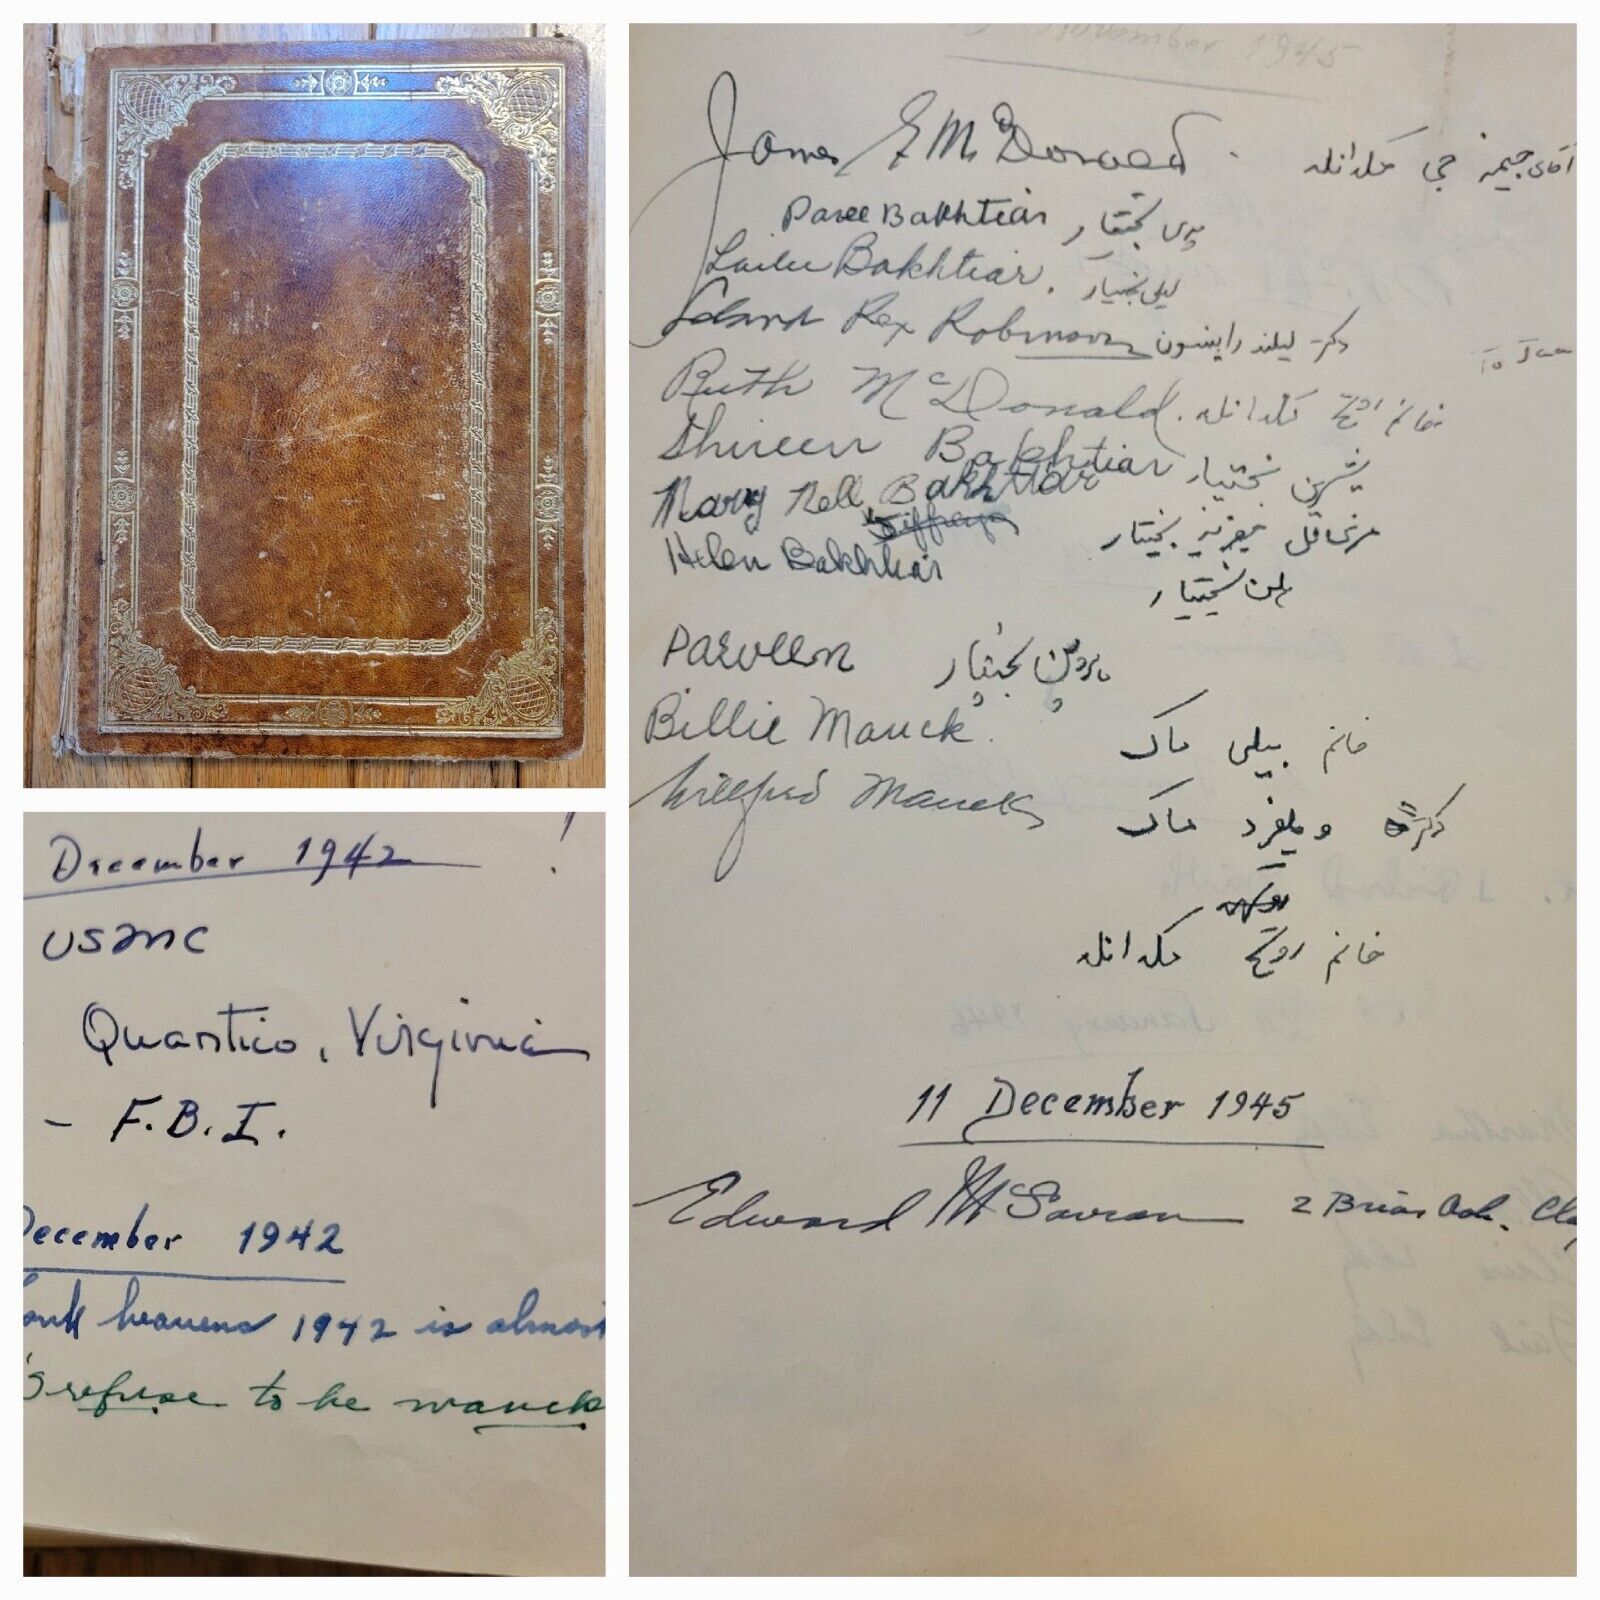 December 1942
USMC
Quantico, Virginia
- F.B.I.
December 1942
heavens 1942 is almost
refuse to be mauck
November 1945
James McDonald آقای جیمز جی مکدانلد
Paree Bakhtiar پری بختیار
Lailee Bakhtiar. لیلی بختیار
Leland Rex Robinson دکتر لیلند رابینسون
Ruth McDonald. خانم مکدانلد
Shireen Bakhtiar شیرین بختیار
Mary Nell Bakhtiar بختیار
Helen Bakhtiar هلن بختیار
Parveen پروین بختیار
Billie Mauck. خانم بیلی ماک
Wilfred Mauck دکتر ویلفرد ماک
خانم مکدانلد
11 December 1945
Edward 2 Briar Oak,